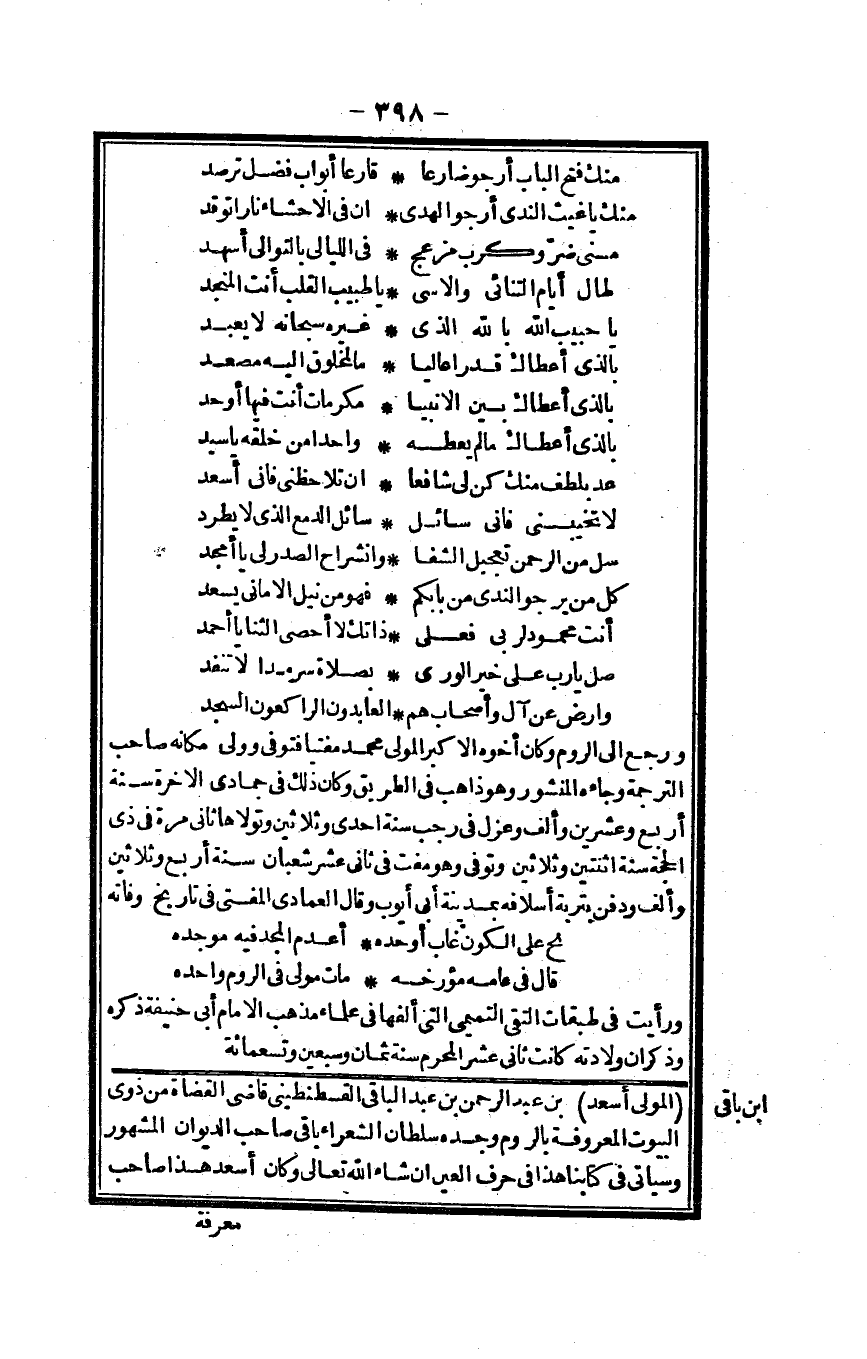 - ٣٩٨ -
منك فتح الباب أرجو ضارعا * قارعا أبواب فضل ترصد
منك يا غيث الندى أرجو الهدى * ان فى الاحشاء نارا توقد
مسنى ضر وكرب مزعج * فى الليالى بالتوالى أسهد
طال أيام التنائى والاسى * يا طبيب القلب أنت المنجد
يا حبيب الله بالله الذى * غيره سبحانه لا يعبد
بالذى أعطاك قدرا عاليا * ما لمخلوق اليه مصعد
بالذى أعطاك بين الانبيا * مكرمات أنت فيها أوحد
بالذى أعطاك ما لم يعطه * واحدا من خلقه يا سيد
عد بلطف منك كن لى شافعا * ان تلاحظنى فانى أسعد
لا تخيبنى فانى سائل * سائل الدمع الذى لا يطرد
سل من الرحمن تعجيل الشفا * وانشراح الصدر لى يا أمجد
كل من يرجو الندى من بابكم * فهو من نيل الامانى يسعد
أنت محمود لربى فعلى * ذاتك لا أحصى الثنا يا أحمد
صل يارب على خير الورى * بصلاة سرمدا لا تنفد
وارض عن آل وأصحاب هم * العابدون الراكعون السجد
ورجع الى الروم وكان أخوه الاكبر المولى محمد مفتيا فتوفى وولى مكانه صاحب
الترجمة وجاءه المنشور وهو ذاهب فى الطريق وكان ذلك فى جمادى الاخرة سنة
أربع وعشرين وألف وعزل فى رجب سنة احدى وثلاثين وتولاها ثانى مرة فى ذى
الحجة سنة اثنتين وثلاثين وتوفى وهو مفت فى ثانى عشر شعبان سنة أربع وثلاثين
وألف ودفن بتربة أسلافه بمدينة أبى أيوب وقال العمادى المفتى فى تاريخ وفاته
نح على الكون غاب أوحده * أعدم المجد فيه موجده
قال فى عامه مؤرخه * مات مولى فى الروم واحده
ورأيت فى طبقات التقى التميمى التى ألفها فى علماء مذهب الامام أبى حنيفة ذكره
وذكر ان ولادته كانت ثانى عشر المحرم سنة ثمان وسبعين وتسعمائة
(المولى أسعد) بن عبد الرحمن بن عبد الباقى القسطنطينى قاضى القضاة من ذوى
ابن باقى
البيوت المعروفة بالروم وجده سلطان الشعراء باقى صاحب الديوان المشهور
وسيأتى فى كتابنا هذا فى حرف العين ان شاء الله تعالى وكان أسعد هذا صاحب
معرفة